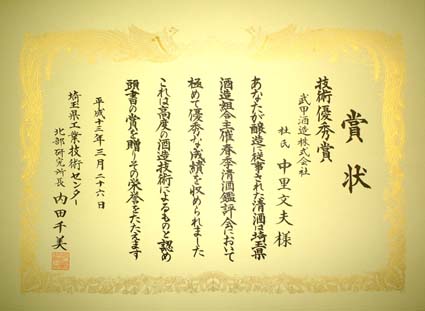 賞状
技術優秀賞
武甲酒造株式会社
杜氏 中里文夫様
あなたが醸造に従事された清酒は埼玉県
酒造組合主催春季清酒鑑評会において
極めて優秀な成績を収められました
これは高度の酒造技術によるものと認め
頭書の賞を贈りその栄誉をたたえます
平成十三年三月二十六日
埼玉県工業技術センター
北部研究所長 内田千美